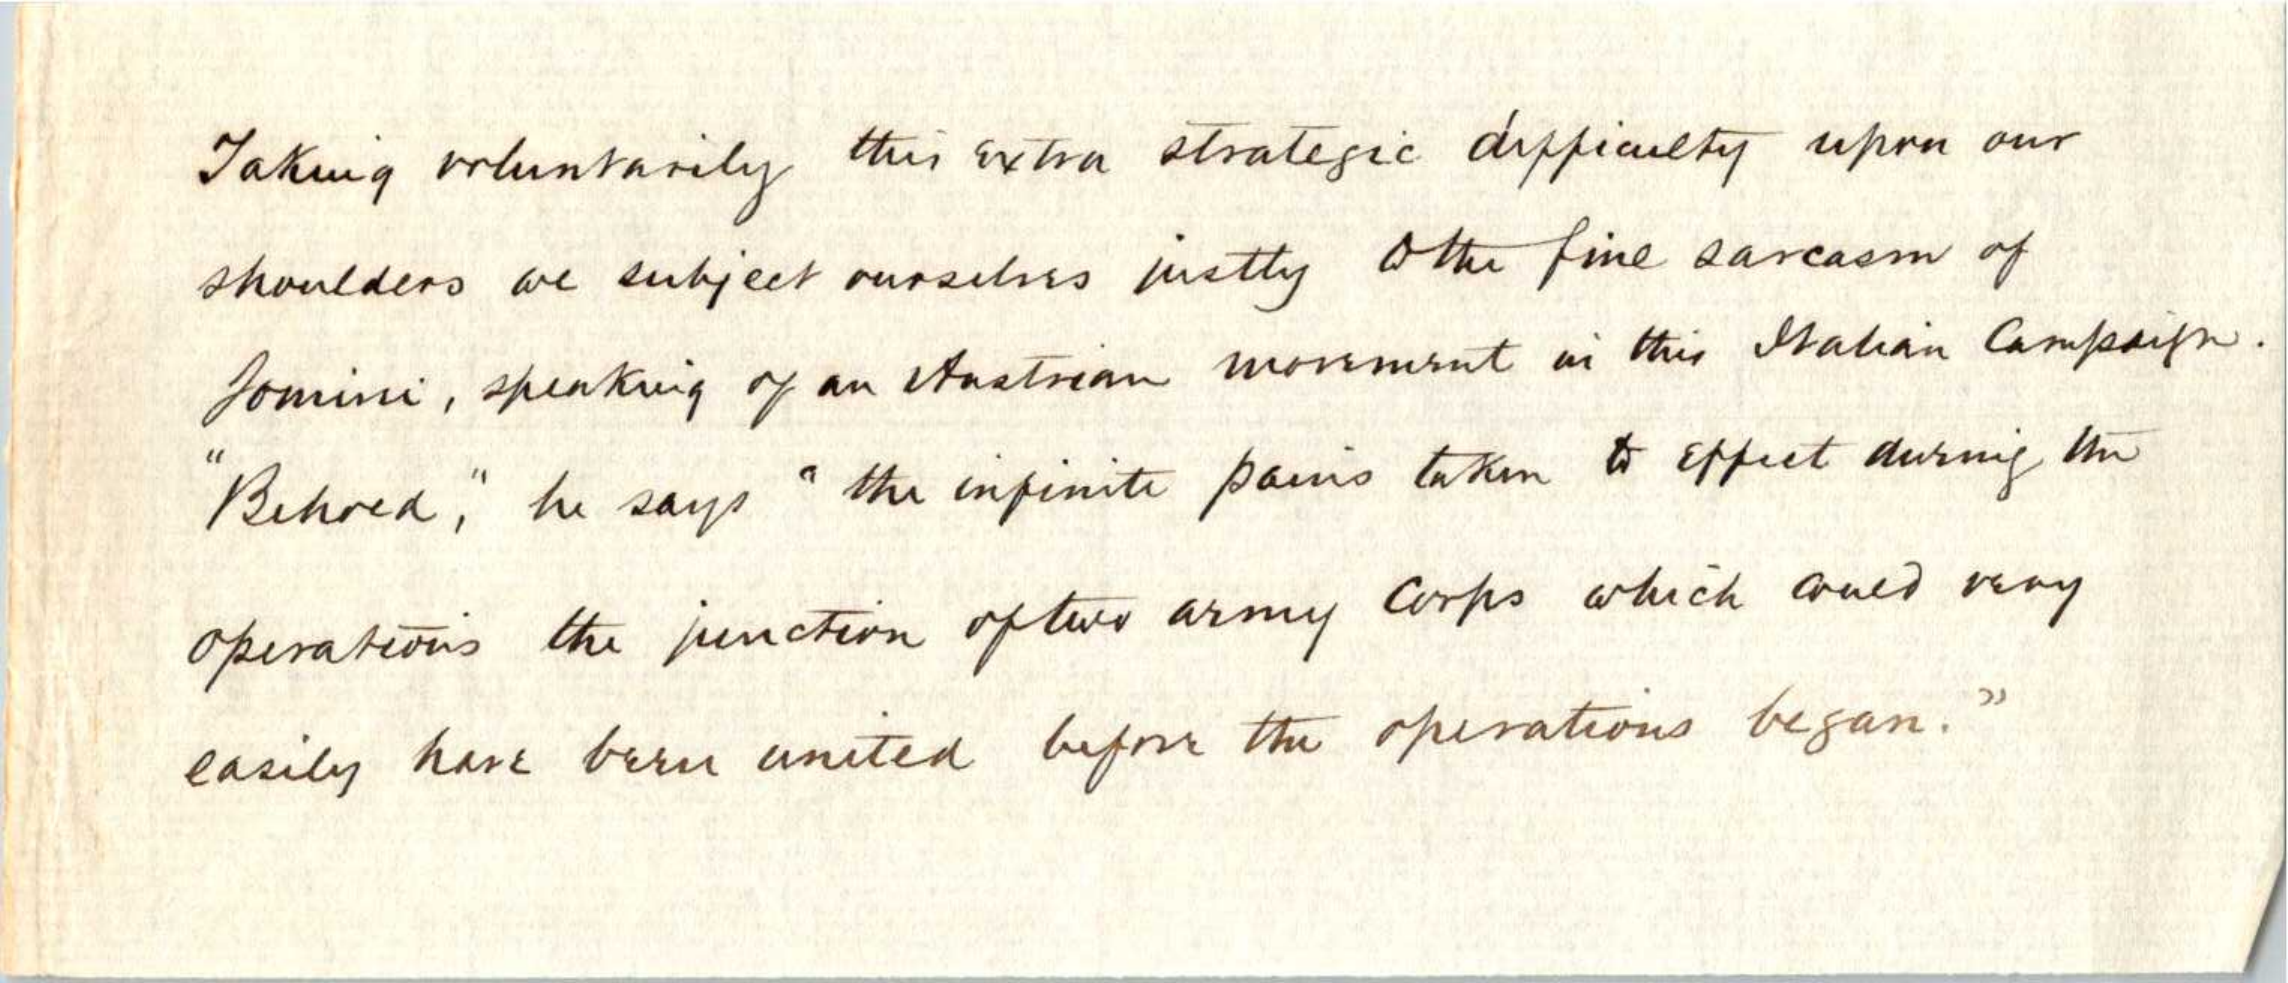 Taking voluntarily this extra strategic difficulty upon our
shoulders we subject ourselves justly to the fine sarcasm of
Jomini, speaking of an Austrian movement in this Italian Campaign.
"Behold," he says "the infinite pains taken to effect during the
operations the junction of two army corps which could very
easily have been united before the operations began."